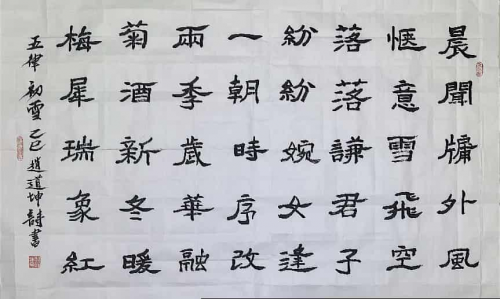 晨聞牗外風
愜意雪飛空
落落謙君子
紛紛婉女逢
一朝時序改
兩季歲華融
菊酒新冬暖
梅犀瑞象紅
五律 初雪 乙巳 趙道坤詩書